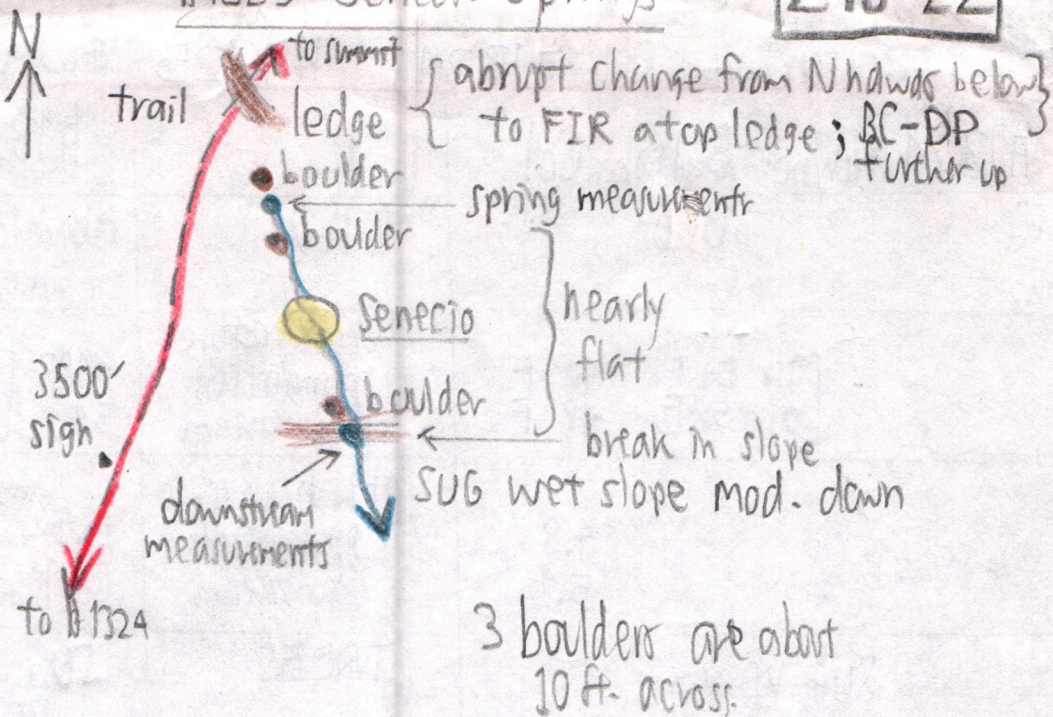 Senecio Springs
N
to summit
trail
ledge
{ abrupt change from N hdwds below }
to FIR atop ledge ; BC-DP
further up
boulder
spring measurements
boulder
Senecio
nearly
flat
3500'
sign
boulder
break in slope
SUG wet slope mod. down
downstream
measurements
to 1324
3 boulders are about
10 ft. across.